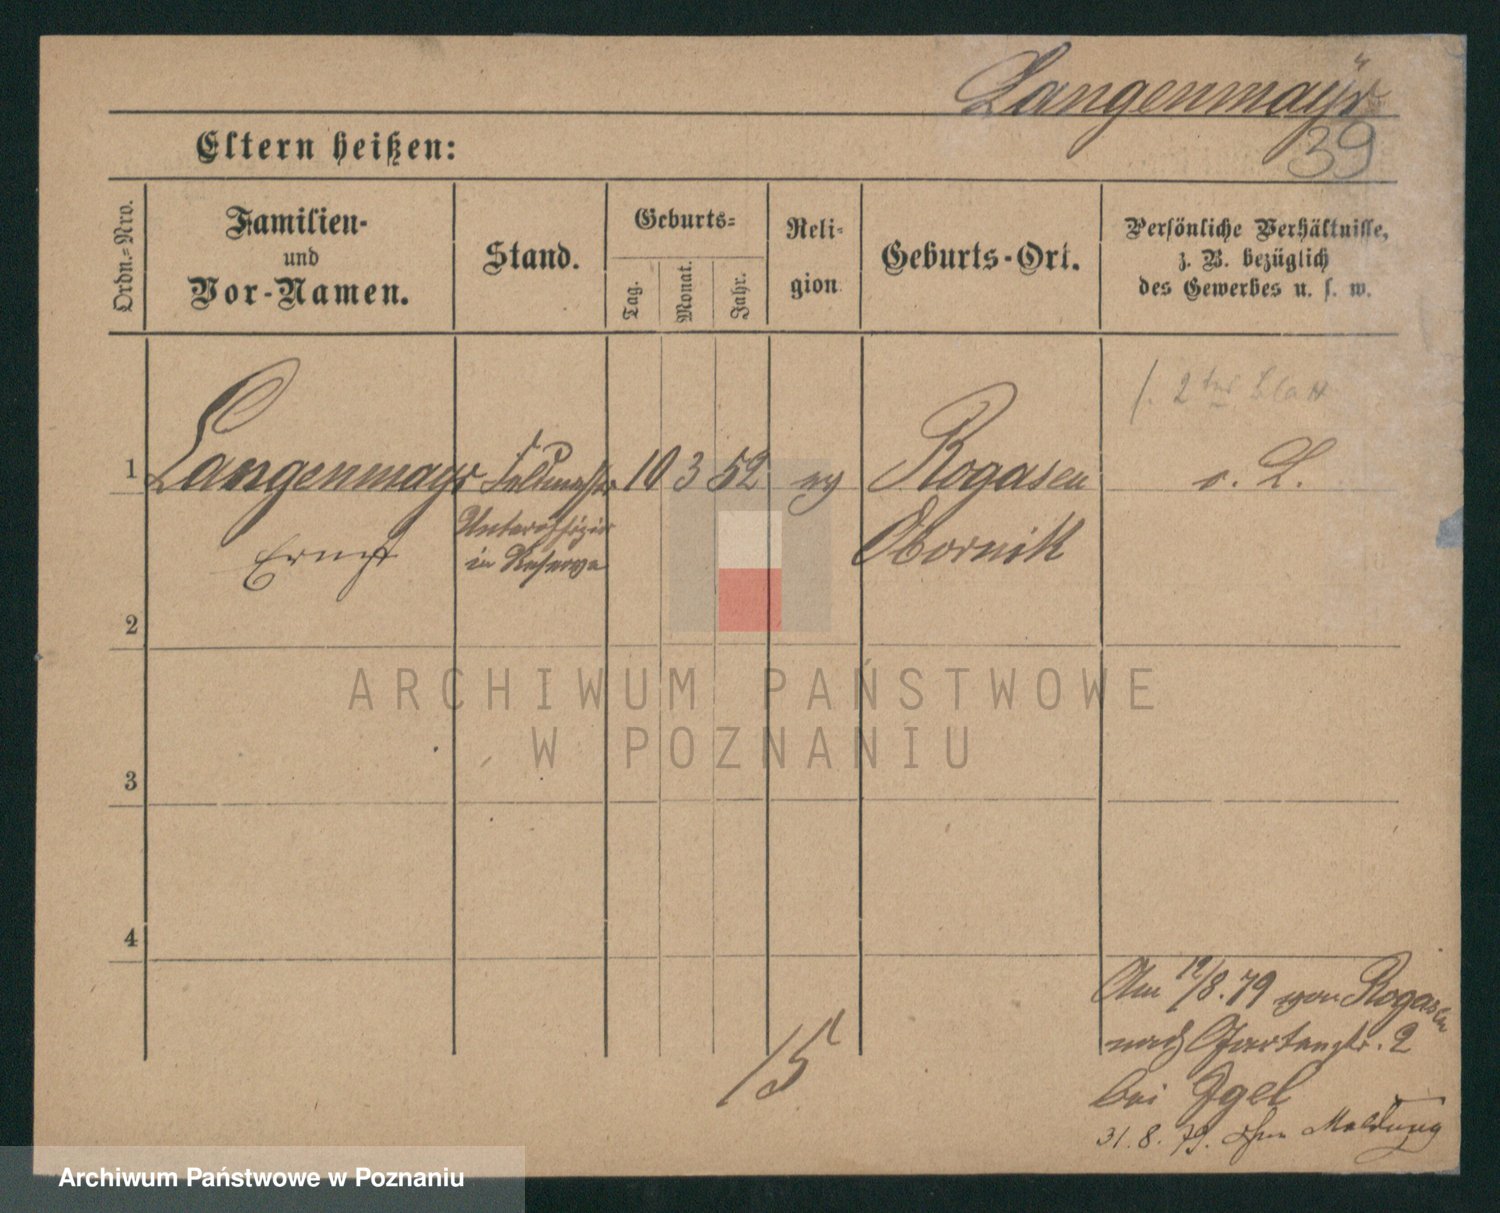 Langenmayr
39
Eltern heißen:
Ordn.-Nro.
Familien-
und
Vor-Namen.
Stand.
Geburts-
Tag.
Monat.
Jahr.
Reli-
gion
Geburts-Ort.
Persönliche Verhältnisse,
z. B. bezüglich
des Gewerbes u. s. w.
f. 2 tes Blatt
1 Langenmayr 10 3 52 ev Rogasen
Unteroffizier Obornik
Ernst in Reserve
2
3
4
Am 12/8. 79 von Rogasen
nach Gartenstr. 2
bei Igel
31. 8. 79. ohne Meldung
15
ARCHIWUM PAŃSTWOWE
W POZNANIU
Archiwum Państwowe w Poznaniu